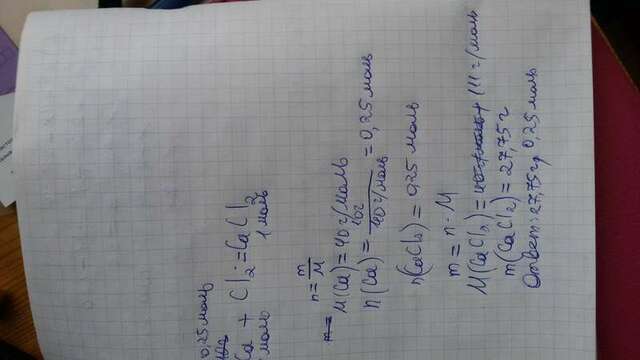 0,25 моль
Ca + Cl2 = CaCl2
моль 1 моль
n = m/M
M(Ca) = 40 г/моль
n(Ca) = 10г/40 г/моль = 0,25 моль
n(CaCl2) = 0,25 моль
m = n · M
M(CaCl2) = 111 г/моль
m(CaCl2) = 27,75 г
Ответ: 27,75г, 0,25 моль